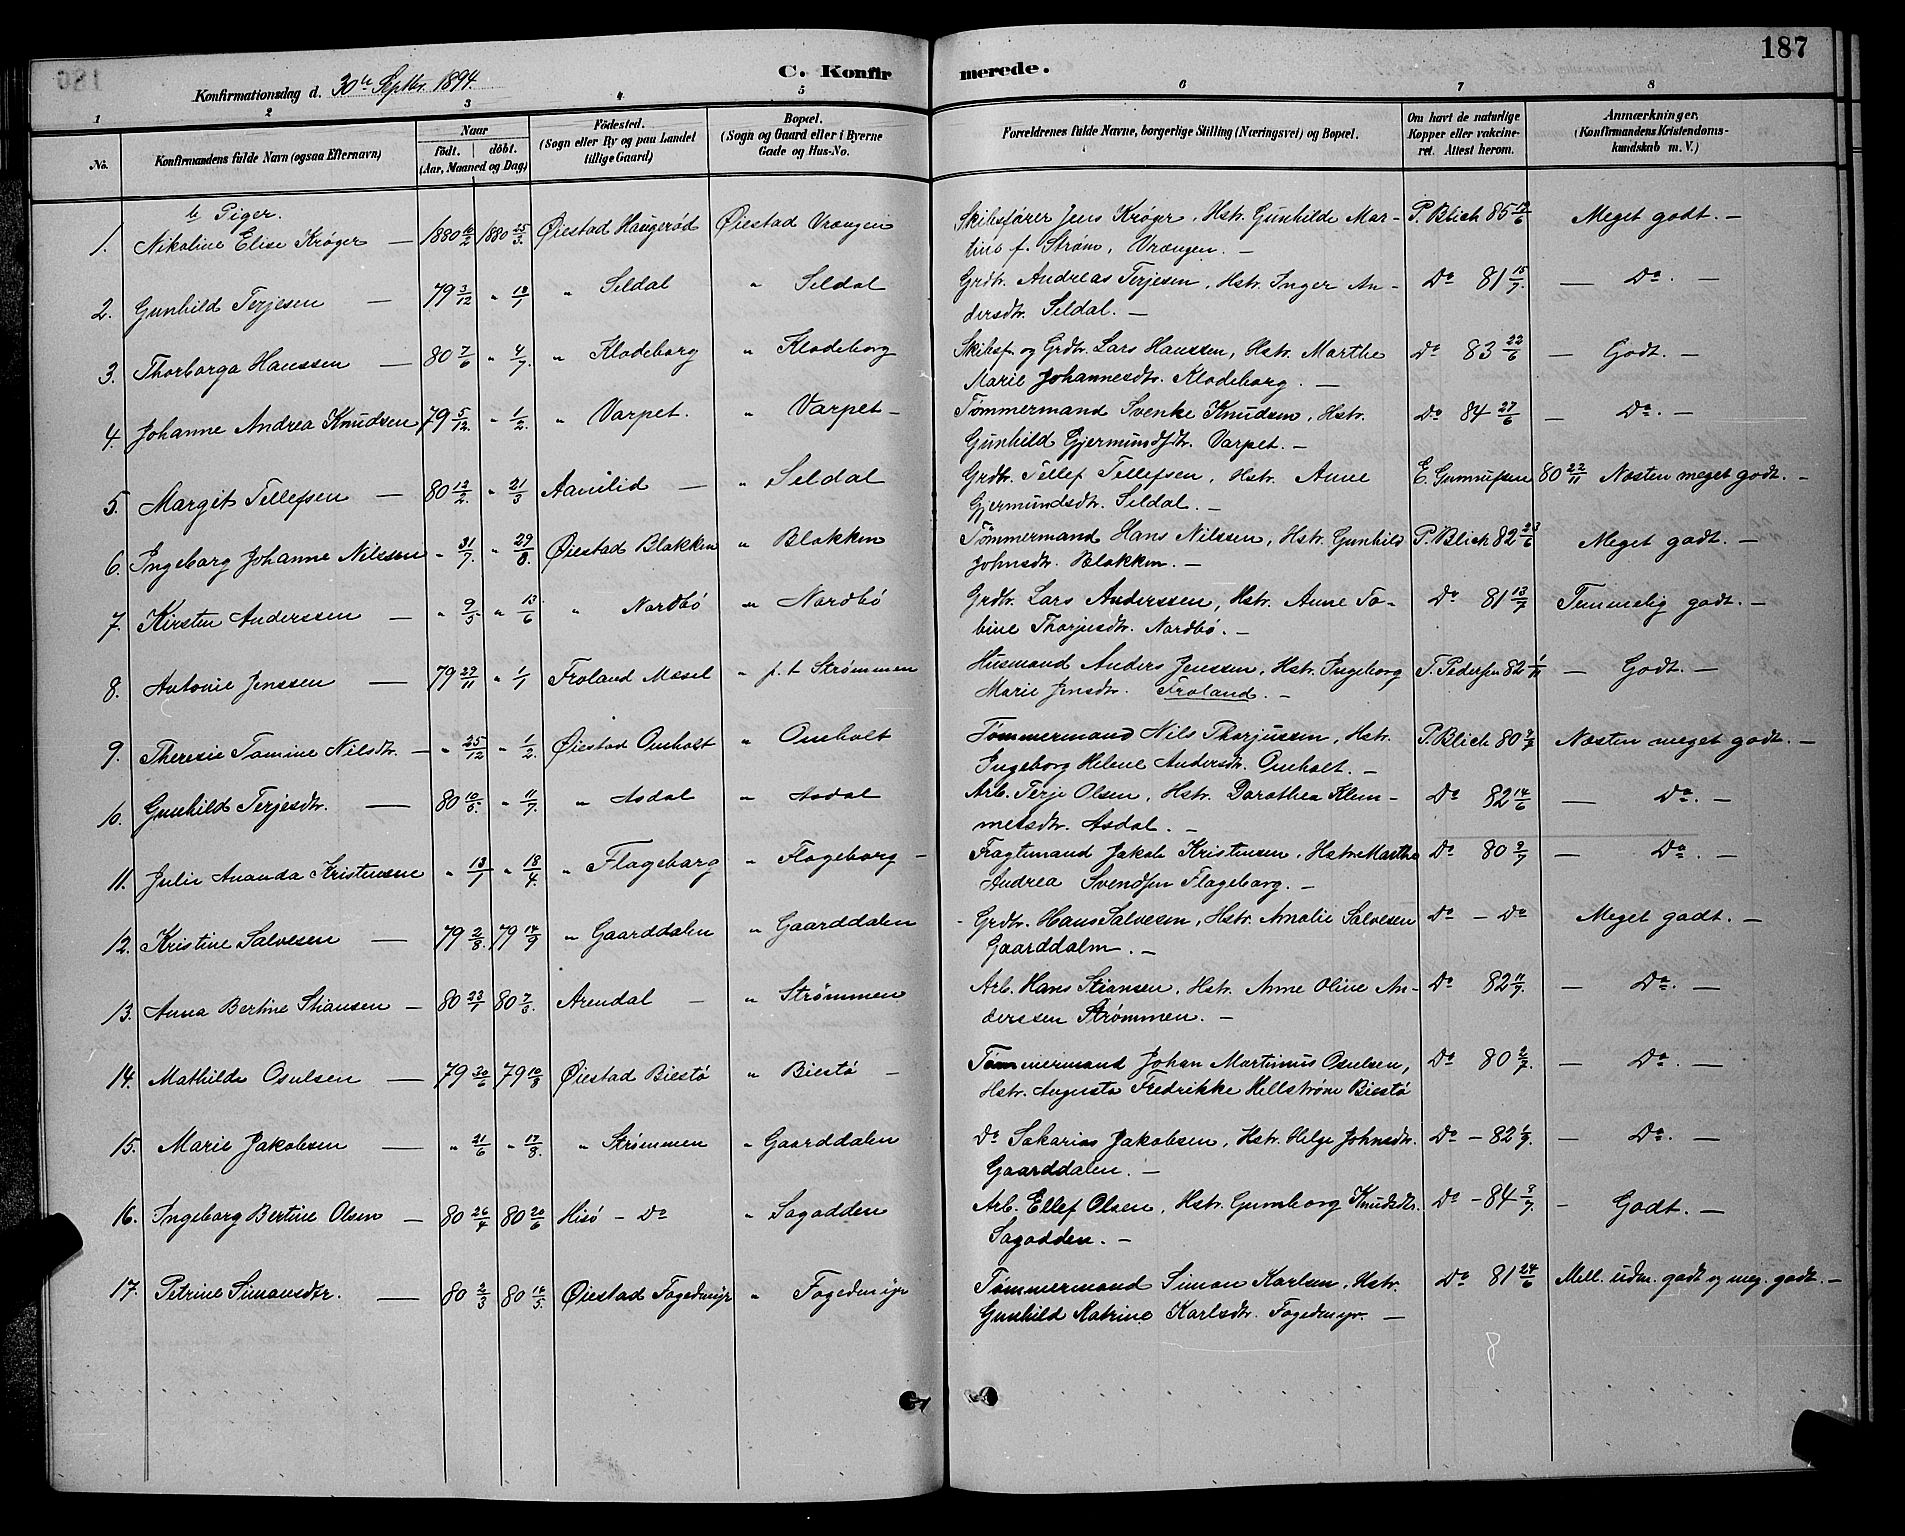 187
C. Konfirmerede.
Konfirmationsdag d. 30te Septbr. 1894.
1 2 3 4 5 6 7 8
No.
Konfirmandens fulde Navn (ogsaa Efternavn)
Naar
födt. döbt.
(Aar, Maaned og Dag)
Födested.
(Sogn eller By og paa Landet
tillige Gaard)
Bopæl.
(Sogn og Gaard eller i Byerne
Gade og Hus-No.
Forældrenes fulde Navne, borgerlige Stilling (Næringsvei) og Bopæl.
Om havt de naturlige
Kopper eller vakcine-
ret. Attest herom.
Anmærkninger.
(Konfirmandens Kristendoms-
kundskab m. V.)
b Piger.
1. Nikoline Elise Krøger — 1880 16/2 1880 25/3 Øiestad Haugerød Øiestad Vrængen Skibsfører Jens Krøger, Hstr. Gunhilde Mar- P. Blich 85 12/6 Meget godt. —
tine f. Strøm, Vrængen. —
2. Gunhild Terjesen — 79 3/12 " 18/1 " Seldal " Seldal Grdbr. Andreas Terjesen, Hstr. Inger An- Do 81 15/7 — Do. —
dersdtr. Seldal. —
3. Thorborga Hanssen — 80 7/6 " 4/7 " Klodeborg " Klodeborg Skibsf. og Grdbr. Lars Hanssen, Hstr. Marthe Do 83 22/6 — Godt. —
Marie Johannesdtr. Klodeborg. —
4. Johanne Andrea Knudsen 79 5/12 " 1/2 " Varpet. " Varpet — Tømmermand Svenke Knudsen, Hstr. Do 84 27/6 — Do. —
Gunhild Gjermundsdtr. Varpet. —
5. Margit Tellefsen — 80 12/2 " 21/3 Aamlid — " Seldal Grdbr. Tellef Tellefsen, Hstr. Anne E. Gunnufsen 80 22/11 Næsten meget godt. —
Gjermundsdtr. Seldal. —
6. Ingeborg Johanne Nilssen " 31/7 " 29/8 Øiestad Blakken " Blakken Tømmermand Hans Nilssen, Hstr. Gunhild P. Blich 82 23/6 Meget godt. —
Johnsdtr. Blakken. —
7. Kirsten Anderssen — " 9/5 " 13/6 " Nordbø " Nordbø Grdbr. Lars Anderssen, Hstr. Anne To- Do 81 13/7 Temmelig godt. —
bine Thorjusdtr. Nordbø. —
8. Antonie Jenssen — 79 22/11 " 1/1 Froland Messel " p. t. Strømmen Husmand Anders Jenssen, Hstr. Ingeborg T. Pedersen 82 1/11 — Godt. —
Marie Jensdtr. Froland. —
9. Theresie Tomine Nilsdtr. — " 25/12 " 1/2 Øiestad Omholt " Omholt Tømmermand Nils Thorjussen, Hstr. P. Blich 80 2/7 Næsten meget godt. —
Ingeborg Helene Andersdtr. Omholt. —
10. Gunhild Terjesdtr. — 80 10/5 " 11/7 " Asdal " Asdal Arb. Terje Olsen, Hstr. Dorothea Klem- Do 82 14/6 — Do. —
metsdtr. Asdal. —
11. Julie Amanda Kristensen " 13/1 " 18/4 " Flageborg " Flageborg — Fragtemand Jakob Kristensen, Hstr. Marthe Do 80 2/7 — Do. —
Andrea Svendsen Flageborg. —
12. Kristine Salvesen — 79 2/8 79 14/9 " Gaarddalen " Gaarddalen - Grdbr. Hans Salvesen, Hstr. Amalie Salvesen Do — Do Meget godt. —
Gaarddalen. —
13. Anna Bertine Stiansen — 80 23/1 80 7/3 Arendal — " Strømmen Arb. Hans Stiansen, Hstr. Anne Oline An- Do 82 11/7 — Do. —
derssen Strømmen. —
14. Mathilde Osulsen — 79 30/6 79 10/8 Øiestad Biestø " Biestø — Tømmermand Johan Martinius Osulsen, Do 80 2/7 — Do. —
Hstr. Augusta Fredrikke Hellstrøm Biestø
15. Marie Jakobsen — " 21/6 " 17/8 " Strømmen " Gaarddalen Do Sakarias Jakobsen, Hstr. Helge Johnsdtr. Do — 82 1/7 — Do. —
Gaarddalen. —
16. Ingeborg Bertine Olsen — 80 26/4 80 20/6 Hisø — Do " Sagodden Arb. Ellef Olsen, Hstr. Gumborg Knudsdtr. Do — 84 3/7 — Godt. —
Sagodden. —
17. Petrine Simonsdtr. — 80 2/3 80 16/5 Øiestad Fogedmyr " Fogedmyr Tømmermand Simon Karlsen, Hstr. Do 81 24/6 Mell. udm. godt og meg. godt. —
Gunhild Katrine Karlsdtr. Fogedmyr. —
8